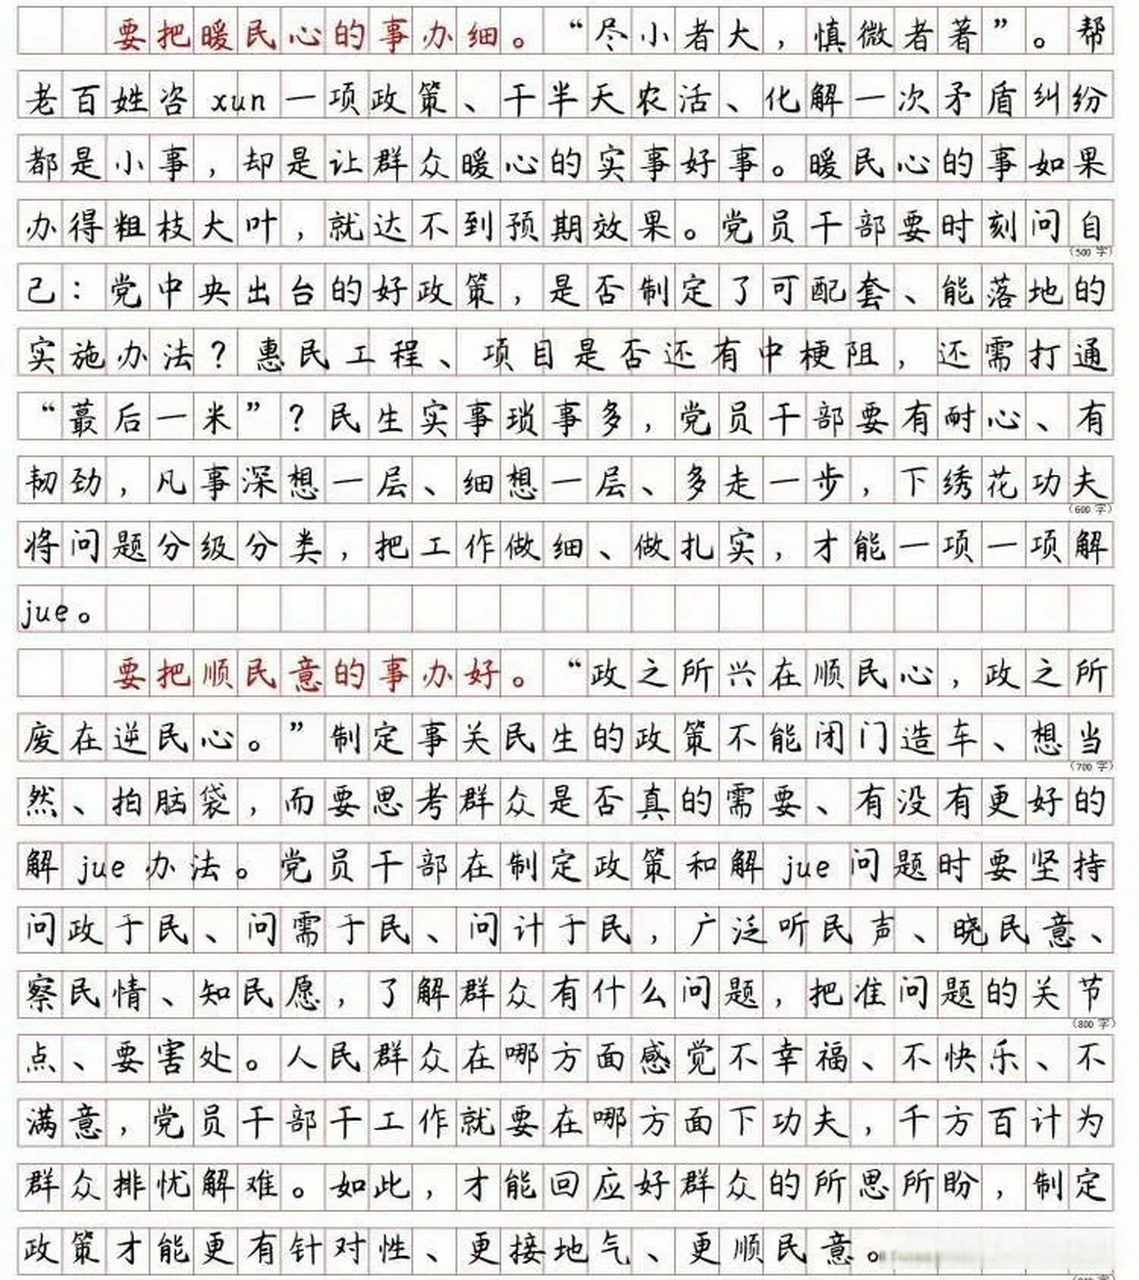 要把暖民心的事办细。“尽小者大，慎微者著”。帮
老百姓咨xun一项政策、干半天农活、化解一次矛盾纠纷
都是小事，却是让群众暖心的实事好事。暖民心的事如果
办得粗枝大叶，就达不到预期效果。党员干部要时刻问自
（500字）
己：党中央出台的好政策，是否制定了可配套、能落地的
实施办法？惠民工程、项目是否还有中梗阻，还需打通
“最后一米”？民生实事琐事多，党员干部要有耐心、有
韧劲，凡事深想一层、细想一层、多走一步，下绣花功夫
（600字）
将问题分级分类，把工作做细、做扎实，才能一项一项解
jue。
要把顺民意的事办好。“政之所兴在顺民心，政之所
废在逆民心。”制定事关民生的政策不能闭门造车、想当
（700字）
然、拍脑袋，而要思考群众是否真的需要、有没有更好的
解jue办法。党员干部在制定政策和解jue问题时要坚持
问政于民、问需于民、问计于民，广泛听民声、晓民意、
察民情、知民愿，了解群众有什么问题，把准问题的关节
（800字）
点、要害处。人民群众在哪方面感觉不幸福、不快乐、不
满意，党员干部干工作就要在哪方面下功夫，千方百计为
群众排忧解难。如此，才能回应好群众的所思所盼，制定
政策才能更有针对性、更接地气、更顺民意。